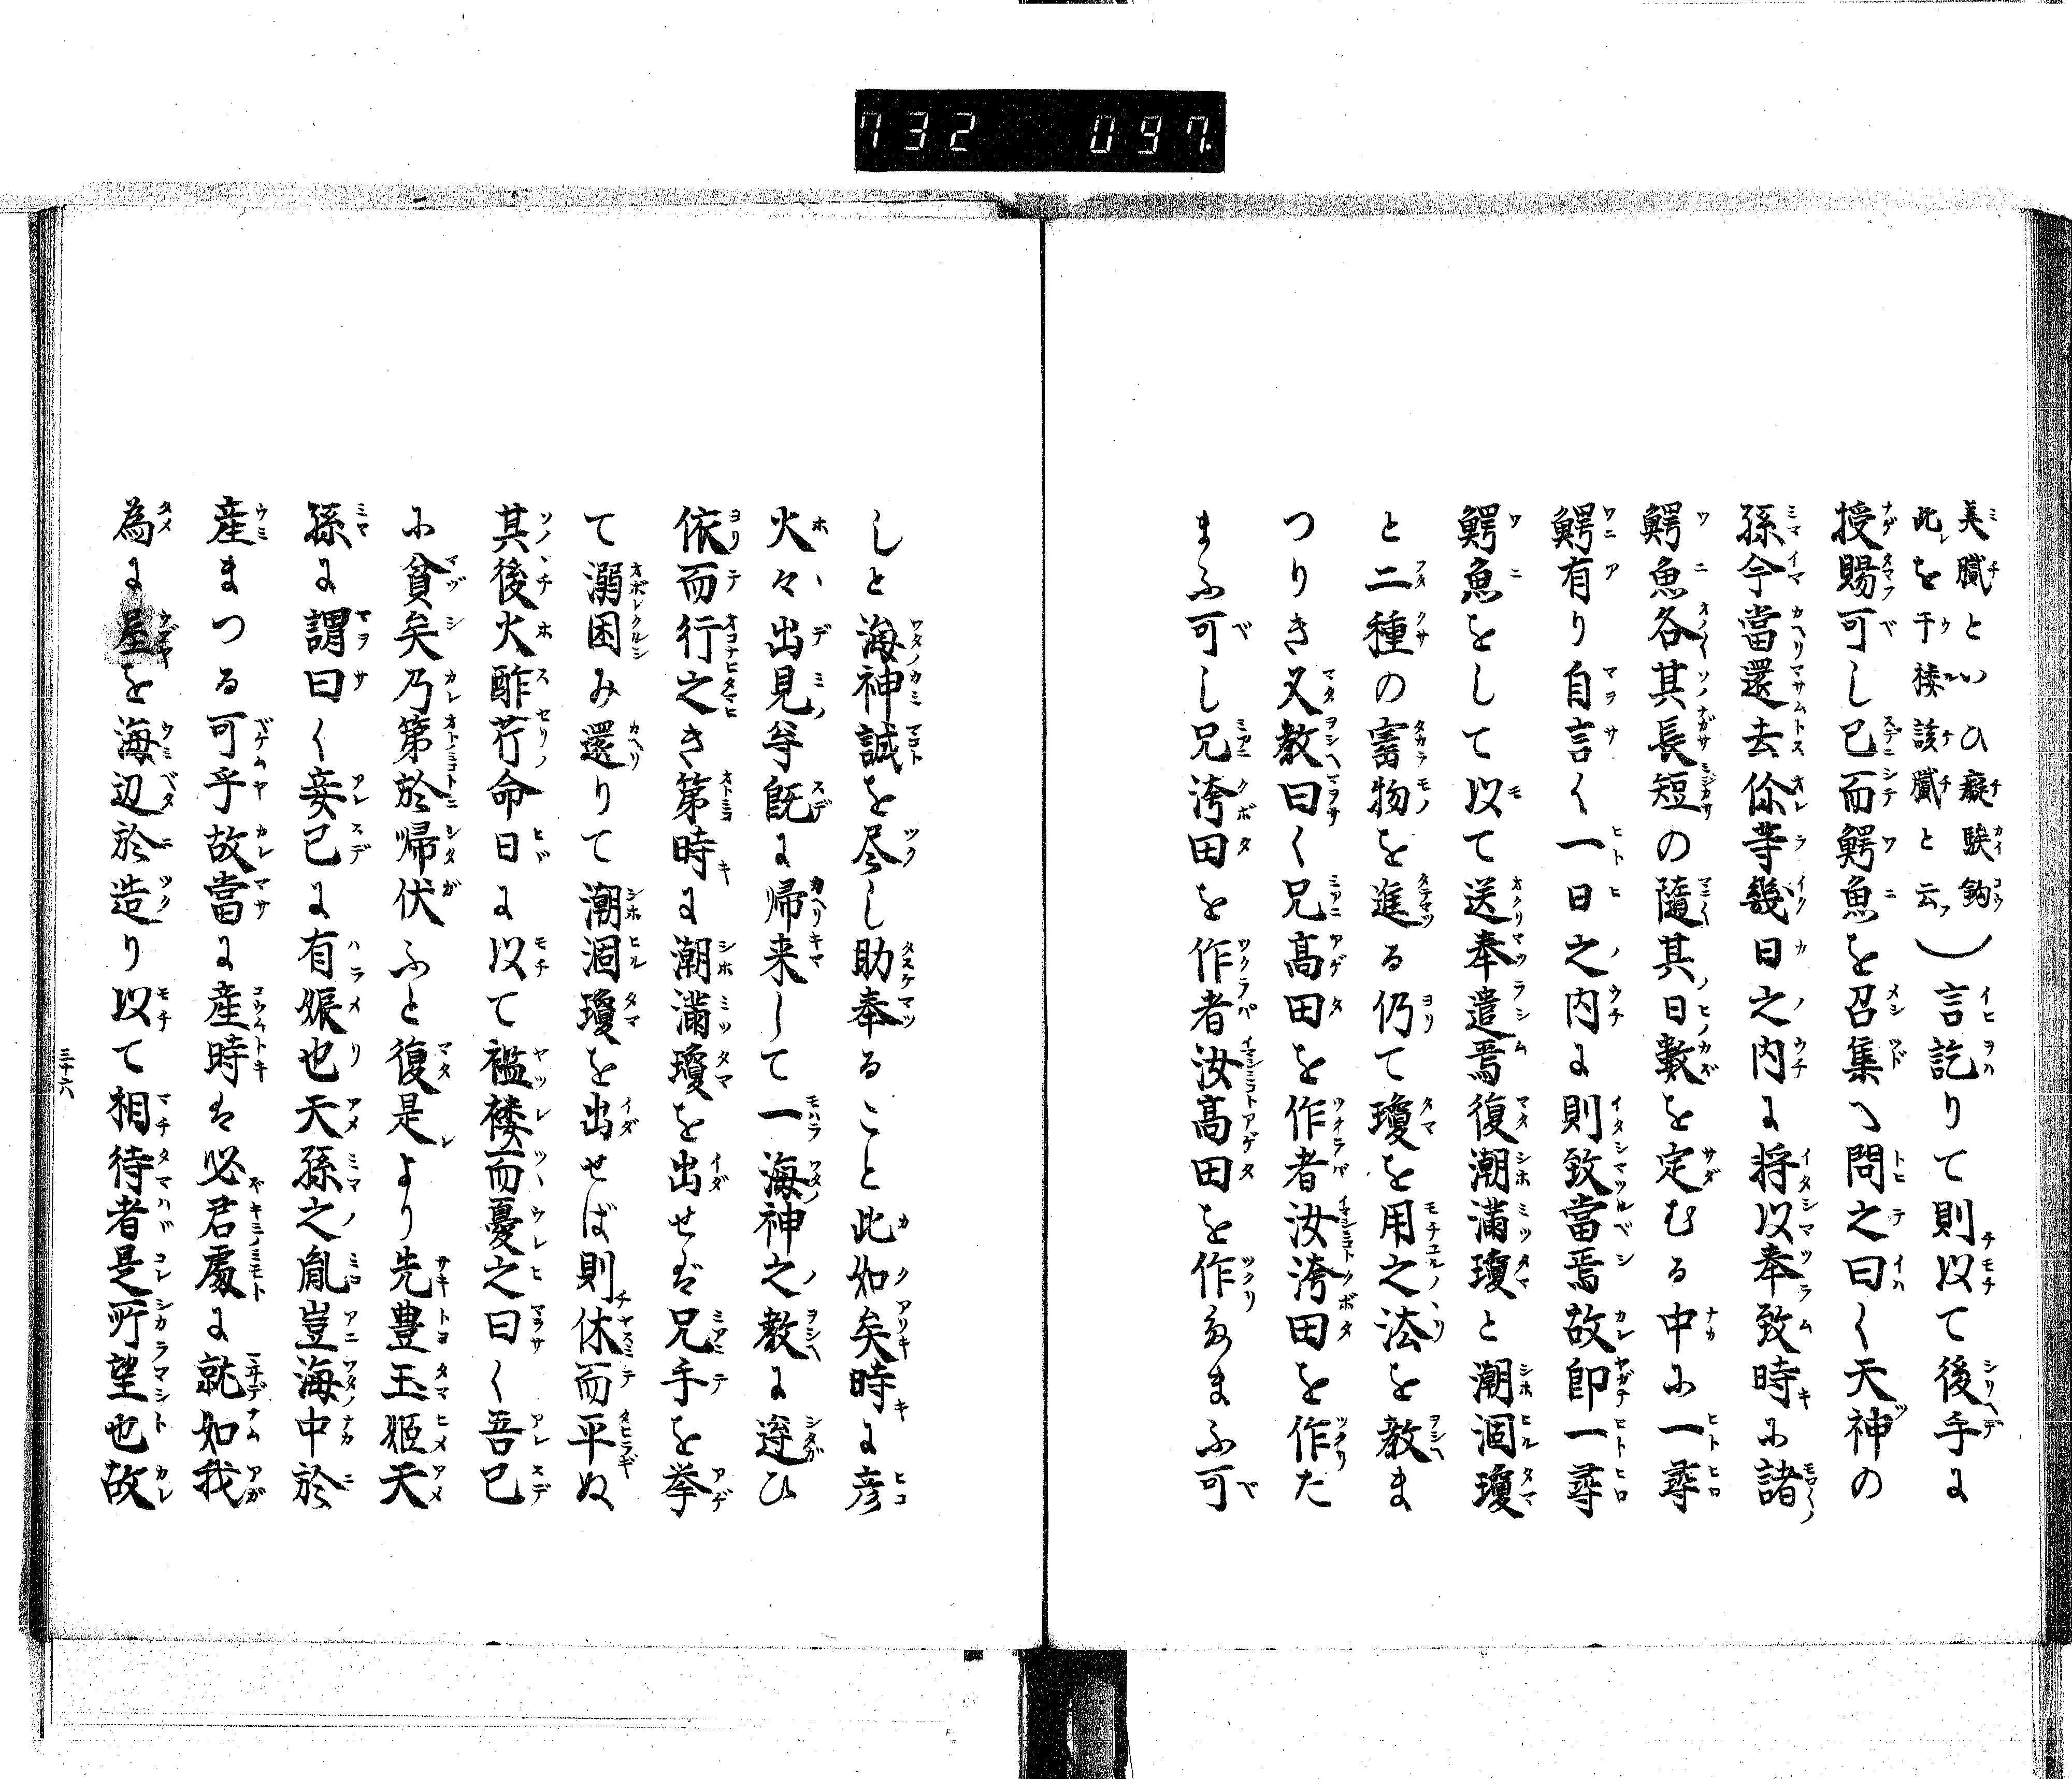 732 097
美膩といひ癡騃鈎
此を于楺該膩と云)言訖りて則以て後手に
授賜可し已而鰐魚を召集へ問之曰く天神の
孫今當還去你等幾日之内に将以奉致時に諸
鰐魚各其長短の隨其日數を定むる中に一尋
鰐有り自言く一日之内に則致當焉故即一尋
鰐魚をして以て送奉遣焉復潮満瓊と潮涸瓊
と二種の寳物を進る仍て瓊を用之法を教ま
つりき又教曰く兄高田を作者汝洿田を作た
まふ可し兄洿田を作者汝高田を作たまふ可
しと海神誠を尽し助奉ること此如矣時に彦
火々出見尊既に帰来して一海神之教に遵ひ
依而行之き第時に潮満瓊を出せば兄手を挙
て溺困み還りて潮涸瓊を出せば則休而平ぬ
其後火酢芹命日に以て襤褸而憂之曰く吾已
に貧矣乃第於帰伏ふと復是より先豊玉姫天
孫に謂曰く妾已に有娠也天孫之胤豈海中於
産まつる可乎故當に産時は必君處に就如我
為に屋を海辺於造り以て相待者是所望也故
三十六